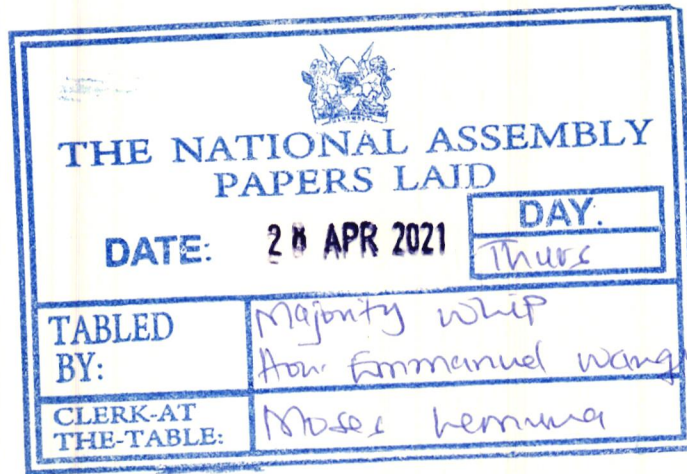 THE NATIONAL ASSEMBLY
PAPERS LAID
DATE: 28 APR 2021
DAY:
Thurs
TABLED BY:
Majority whip
Hon. Emmanuel Wang
CLERK-AT THE-TABLE:
Moses